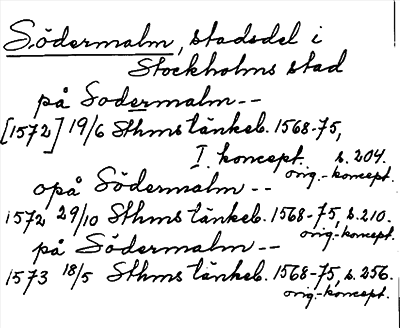 Södermalm, stadsdel i
Stockholms stad
på Sodermalm--
[1572] 19/6 Sthms tänkeb. 1568-75,
I. koncept. s. 204.
orig.-koncept.
opå Södermalm--
1572 29/10 Sthms tänkeb. 1568-75, s. 210.
orig.-koncept.
på Södermalm--
1573 18/5 Sthms tänkeb. 1568-75, s. 256.
orig.-koncept.